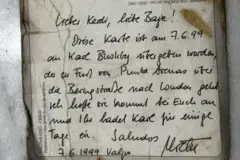 Liebe Kedi, liebe Bage!
Diese Karte ist am 7.6.99
an Karl Bushby übergeben worden,
da er zu Fuss von Punta Arenas über
die Beringstraße nach London geht
ich hoffe er kommt bei Euch an
und Ihr ladet Karl für einige
Tage ein. Saludos
7.6.1999 Valpo